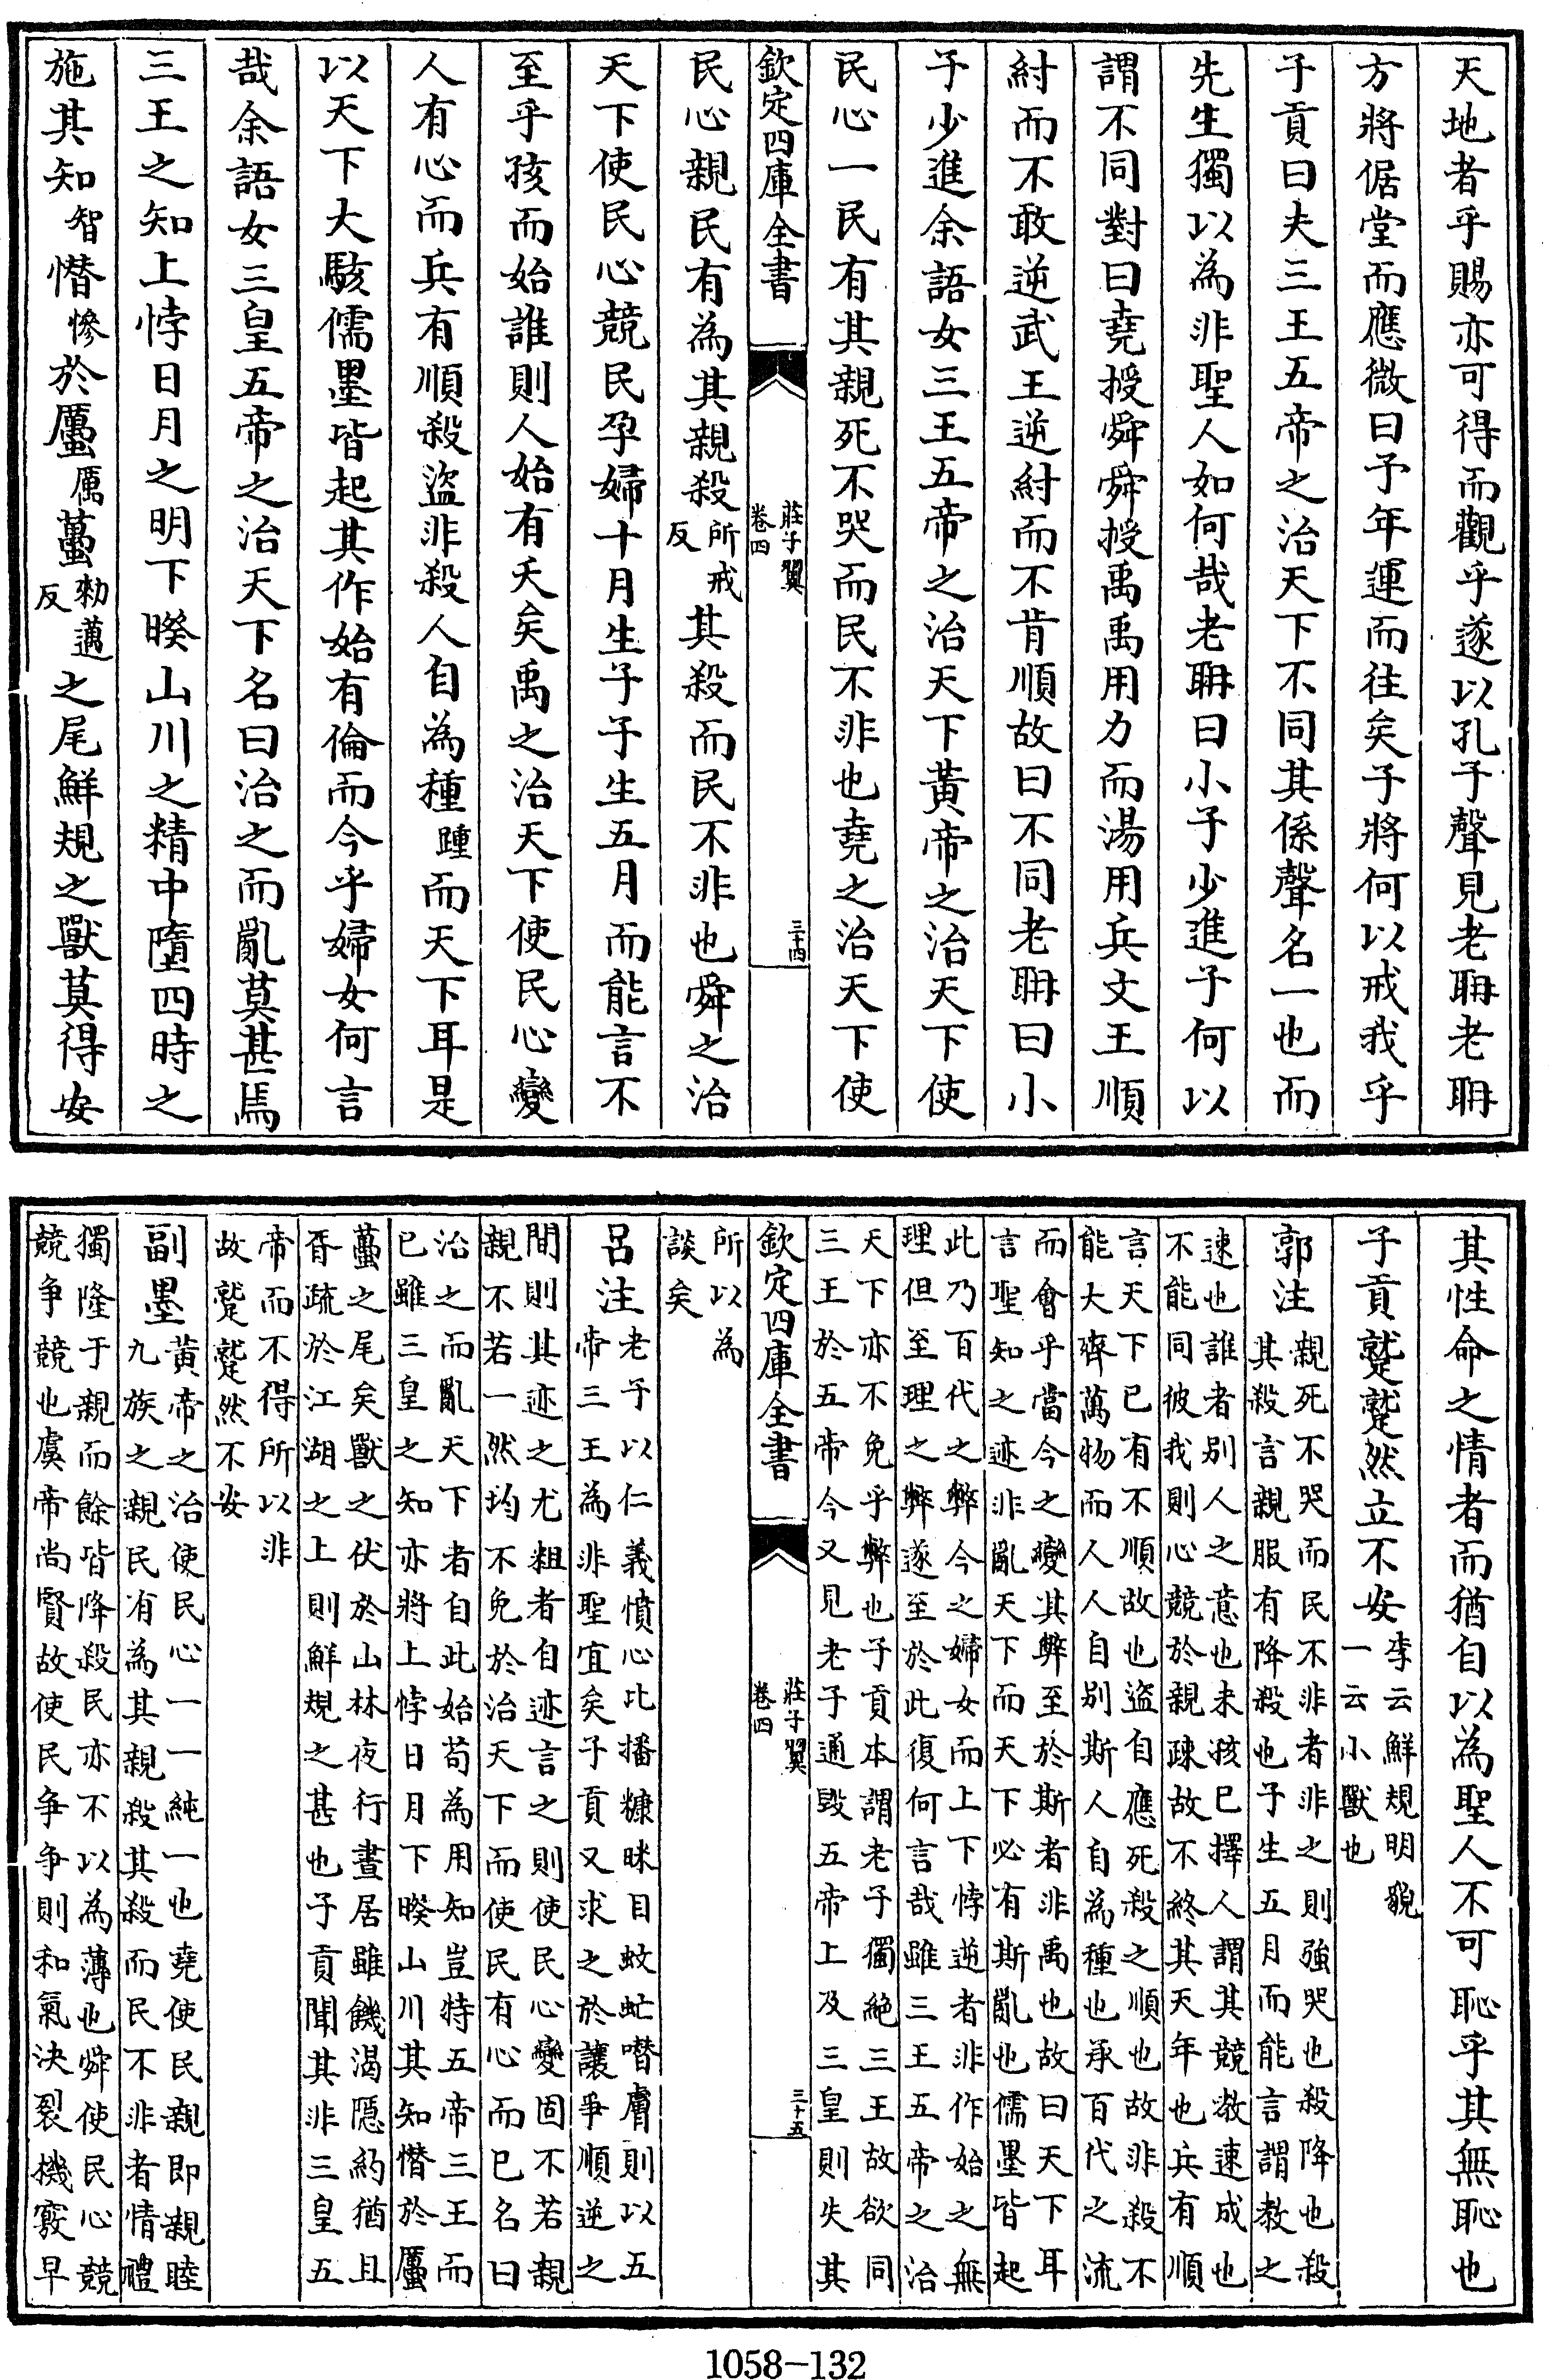 天地者乎賜亦可得而觀乎遂以孔子聲見老聃老聃
方將倨堂而應微曰予年運而往矣子將何以戒我乎
子貢曰夫三王五帝之治天下不同其係聲名一也而
先生獨以為非聖人如何哉老聃曰小子少進子何以
謂不同對曰堯授舜舜授禹禹用力而湯用兵文王順
紂而不敢逆武王逆紂而不肯順故曰不同老聃曰小
子少進余語女三王五帝之治天下黃帝之治天下使
民心一民有其親死不哭而民不非也堯之治天下使
欽定四庫全書
莊子翼
卷四
三十四
民心親民有為其親殺所戒反其殺而民不非也舜之治
天下使民心競民孕婦十月生子子生五月而能言不
至乎孩而始誰則人始有夭矣禹之治天下使民心變
人有心而兵有順殺盜非殺人自為種踵而天下耳是
以天下大駭儒墨皆起其作始有倫而今乎婦女何言
哉余語女三皇五帝之治天下名曰治之而亂莫甚焉
三王之知上悖日月之明下睽山川之精中墮四時之
施其知智憯慘於蠆厲蠆勑邁反之尾鮮規之獸莫得安
其性命之情者而猶自以為聖人不可恥乎其無恥也
子貢蹵蹵然立不安李云鮮規明貌
一云小獸也
郭注親死不哭而民不非者非之則強哭也殺降也殺
其殺言親服有降殺也子生五月而能言謂教之
速也誰者別人之意也未孩已擇人謂其競教速成也
不能同彼我則心競於親疎故不終其天年也兵有順
言天下已有不順故也盜自應死殺之順也故非殺不
能大齊萬物而人人自別斯人自為種也承百代之流
而會乎當今之變其弊至於斯者非禹也故曰天下耳
言聖知之迹非亂天下而天下必有斯亂也儒墨皆起
此乃百代之弊今之婦女而上下悖逆者非作始之無
理但至理之弊遂至於此復何言哉雖三王五帝之治
天下亦不免乎弊也子貢本謂老子獨絶三王故欲同
三王於五帝今又見老子通毀五帝上及三皇則失其
欽定四庫全書
莊子翼
卷四
三十五
所以為
談矣
呂注老子以仁義憤心比播糠眯目蚊虻噆膚則以五
帝三王為非聖宜矣子貢又求之於讓爭順逆之
間則其迹之尤粗者自迹言之則使民心變固不若親
親不若一然均不免於治天下而使民有心而已名曰
治之而亂天下者自此始苟為用知豈特五帝三王而
已雖三皇之知亦將上悖日月下睽山川其知憯於蠆
蠆之尾矣獸之伏於山林夜行晝居雖饑渴隱約猶且
胥疏於江湖之上則鮮規之甚也子貢聞其非三皇五
帝而不得所以非
故蹵蹵然不安
副墨黃帝之治使民心一一純一也堯使民親即親睦
九族之親民有為其親殺其殺而民不非者情禮
獨隆于親而餘皆降殺民亦不以為薄也舜使民心競
競争競也虞帝尚賢故使民争争則和氣決裂機竅早
1058-132